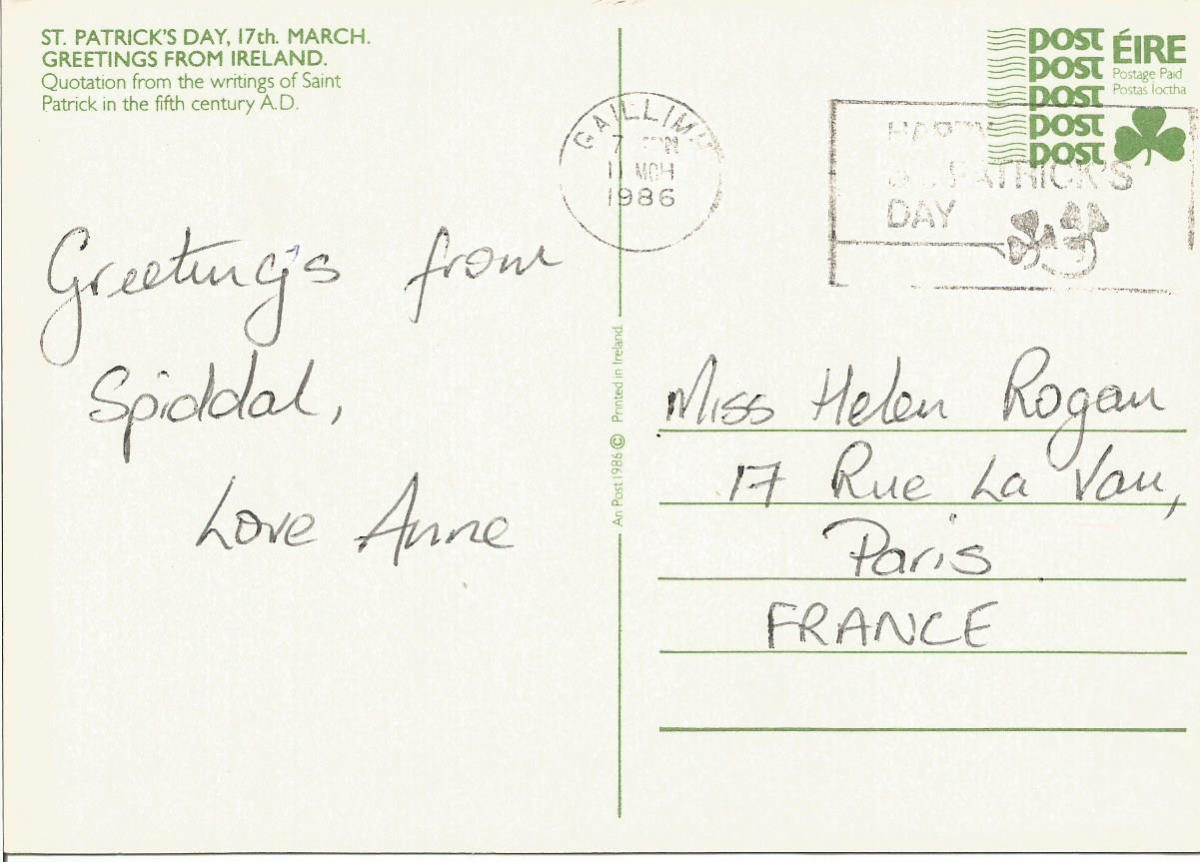 ST. PATRICK'S DAY, 17th. MARCH.
GREETINGS FROM IRELAND.
Quotation from the writings of Saint
Patrick in the fifth century A.D.
POST
POST
POST
POST
POST
ÉIRE
Postage Paid
Postas Íoctha
GAILLIMH
7
11 MCH
1986
HAPPY
ST. PATRICK'S
DAY
Greeting's from
Spiddal,
Love Anne
An Post 1986 © Printed in Ireland.
Miss Helen Rogan
17 Rue La Vau,
Paris
FRANCE